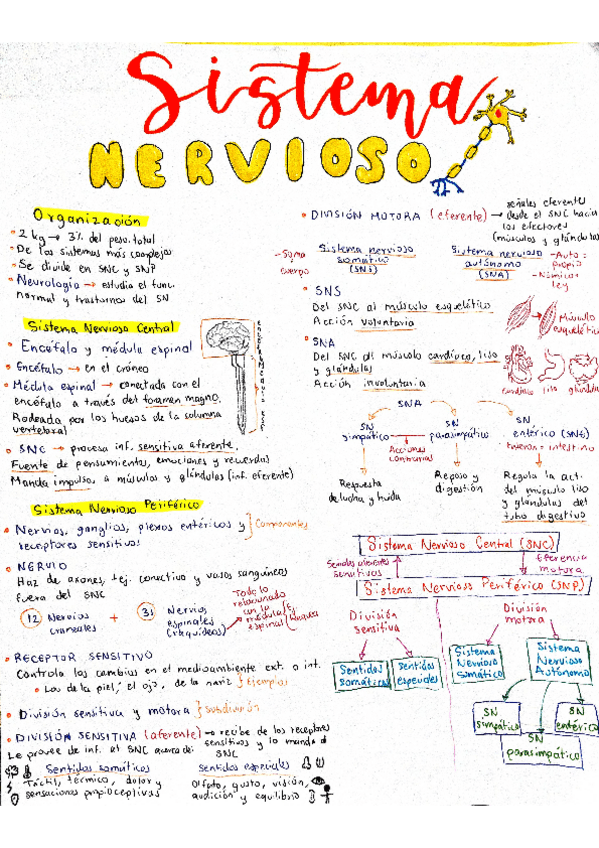 Sistema
NERVIOSO
Organización
• 2 kg → 3% del peso total
• De los sistemas más complejos
• Se divide en SNC y SNP
• Neurología → estudia el func.
normal y trastornos del SN
Sistema Nervioso Central
• Encéfalo y médula espinal
• Encéfalo → en el cráneo
• Médula espinal → conectada con el
encéfalo a través del foramen magno.
Rodeada por los huesos de la columna
vertebral
• SNC → procesa inf. sensitiva aferente.
Fuente de pensamientos, emociones y recuerdos
Manda impulso, a músculos y glándulas (inf. eferente)
Sistema Nervioso Periférico
• Nervios, ganglios, plexos entéricos y } Componentes
receptores sensitivos:
• NERVIO
Haz de axones, tej. conectivo y vasos sanguíneos
fuera del SNC
12 Nervios craneales + 31 Nervios espinales (raquídeos)
Todo lo
relacionado
con la
médula
espinal
• RECEPTOR SENSITIVO
Controla los cambios en el medioambiente ext. o int.
• Los de la piel, el ojo, de la nariz } Ejemplos
• División sensitiva y motora } Subdivisión
• DIVISIÓN SENSITIVA (aferente) → recibe de los receptores
sensitivos y lo manda al
SNC
Le provee de inf. el SNC acerca de:
Sentidos somáticos
Táctil, térmico, dolor y
sensaciones propioceptivas
Sentidos especiales
Olfato, gusto, visión,
audición y equilibrio
• DIVISIÓN MOTORA (eferente) → señales eferentes
desde el SNC hacia
los efectores
(músculos y glándulas)
- Soma
cuerpo
Sistema nervioso
somático
(SNS)
Sistema nervioso
autónomo
(SNA)
- Auto:
propio
- Nómico:
ley
• SNS
Del SNC al músculo esquelético
Acción voluntaria
Músculo
esquelético
• SNA
Del SNC al músculo cardíaco, liso
y glándulas
Acción involuntaria
cardíaco liso glándula
SNA
SN
simpático
SN
parasimpático
SN
entérico (SNE)
Acciones
contrarias
enteron = intestino
Respuesta
de lucha y huida
Reposo y
digestión
Regula la act.
del músculo liso
y glándulas del
tubo digestivo
Sistema Nervioso Central (SNC)
Señales aferentes
sensitivas
Eferencia
motora
Sistema Nervioso Periférico (SNP)
División
sensitiva
División
motora
Sentidos
somáticos
Sentidos
especiales
Sistema
Nervioso
Somático
Sistema
Nervioso
Autónomo
SN
simpático
SN
entérico
SN
parasimpático